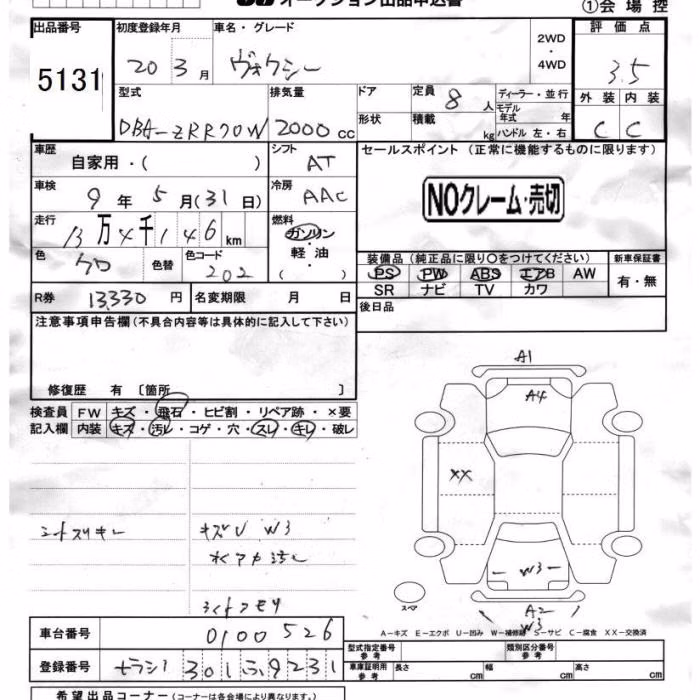 オークション出品申込書
①会場控
出品番号 初度登録年月 車名・グレード 2WD・4WD 評価点
5131 20 3月 ヴォクシー 3.5
型式 排気量 ドア 定員 8人 ディーラー・並行 外装 内装
DBA-ZRR70W 2000cc 形状 積載 kg モデル年式 年 C C
ハンドル 左・右
車歴 自家用・( ) シフト AT セールスポイント (正常に機能するものに限ります)
車検 9年 5月(31日) 冷房 AAC
NOクレーム・売切
走行 13万4千146km 燃料 ガソリン・軽油・( )
色 クロ 色替 色コード 202
装備品(純正品に限り○をつけてください) 新車保証書
PS PW ABS エアB AW 有・無
SR ナビ TV カワ
R券 13,330円 名変期限 月 日 後日品
注意事項申告欄(不具合内容等は具体的に記入して下さい)
修復歴 有 [箇所 ]
検査員 FW キズ・飛石・ヒビ割・リペア跡・×要
記入欄 内装 キズ・汚レ・コゲ・穴・スレ・キレ・破レ
A1
A4
XX
シートスリキレ キズU W3
水アカ
W3
スペア
A2
W3
A-キズ E-エクボ U-凹み W-補修跡 S-サビ C-腐食 XX-交換済
車台番号 0100526
型式指定番号 参考 類別区分番号 参考
登録番号 301 ふ 9231
車庫証明用 参考 長さ cm 幅 cm 高さ cm
希望出品コーナー(コーナーは各会場により異なります。)